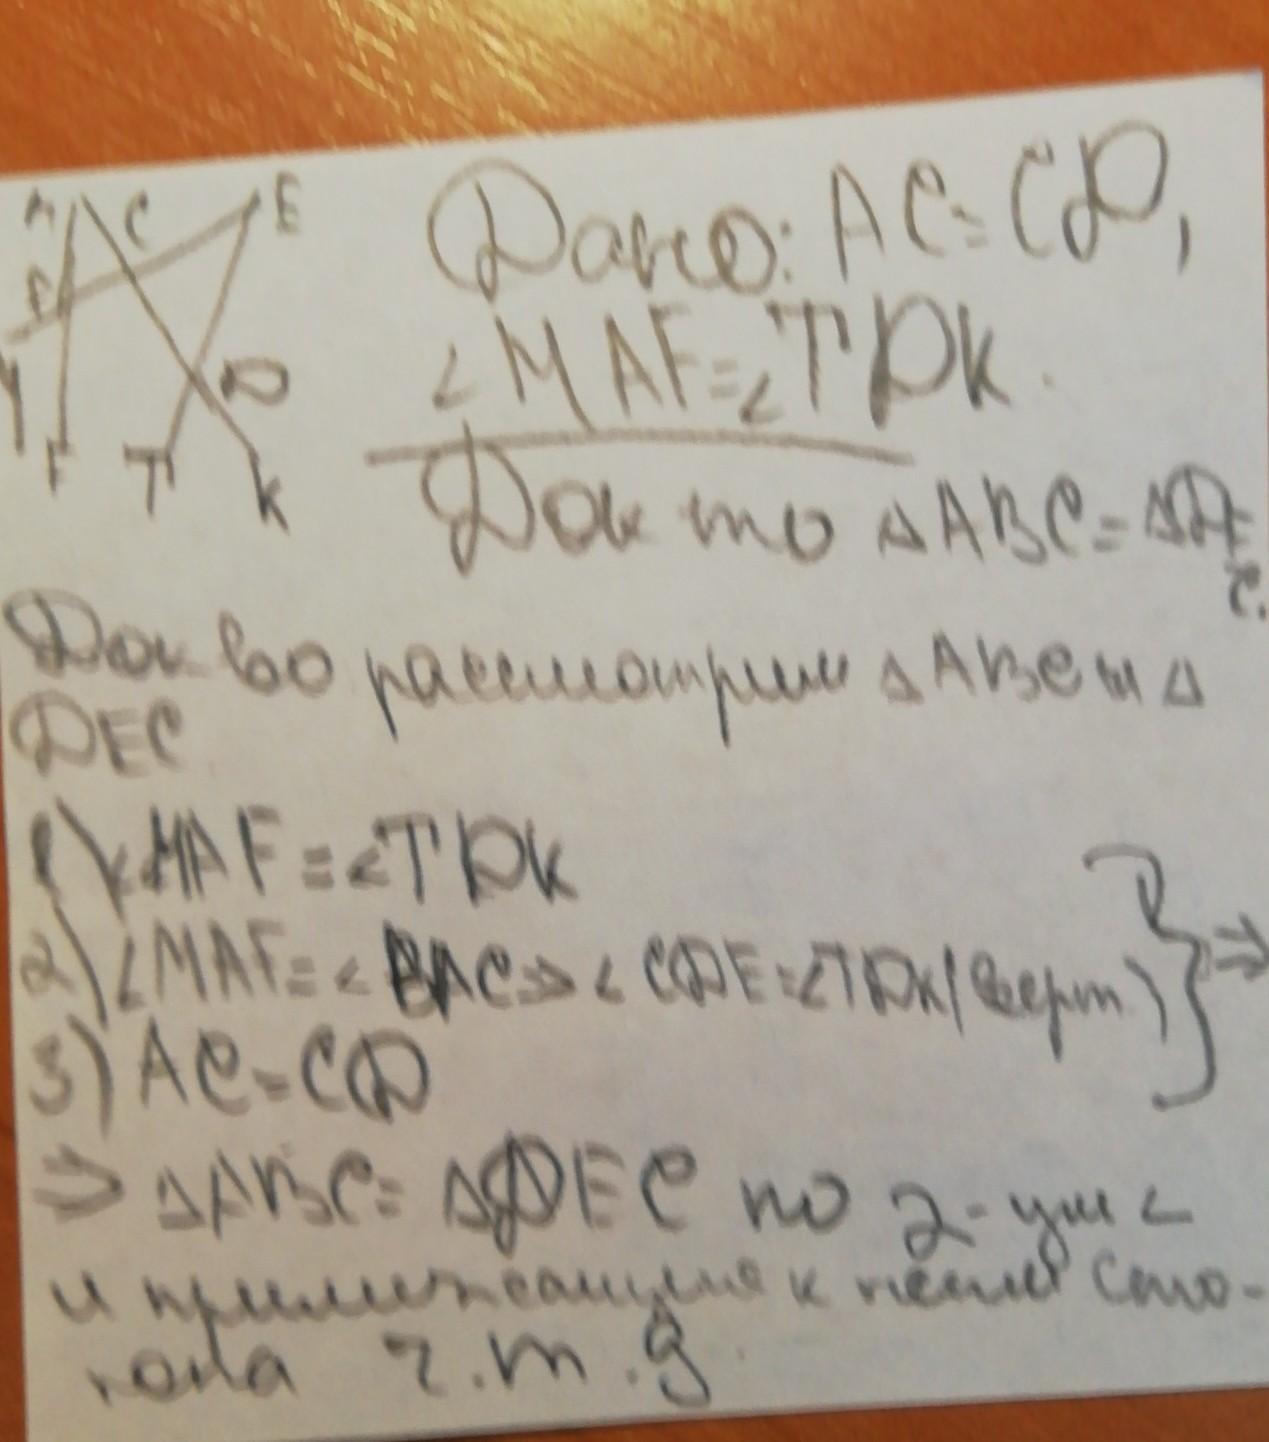 C E
Дано: AC=CD,
∠MAF=∠TDK.
D
F T K
Док то △ABC=△DE
C.
Док-во рассмотрим △ABC и △
DEC
1) ∠MAF=∠TDK
2) ∠MAF=∠BAC⇒∠CDE=∠TDK(верт.) } ⇒
3) AC=CD
⇒ △ABC=△DEC по 2-ум ∠
и прилежащие к ним сто-
рона ч.т.д.